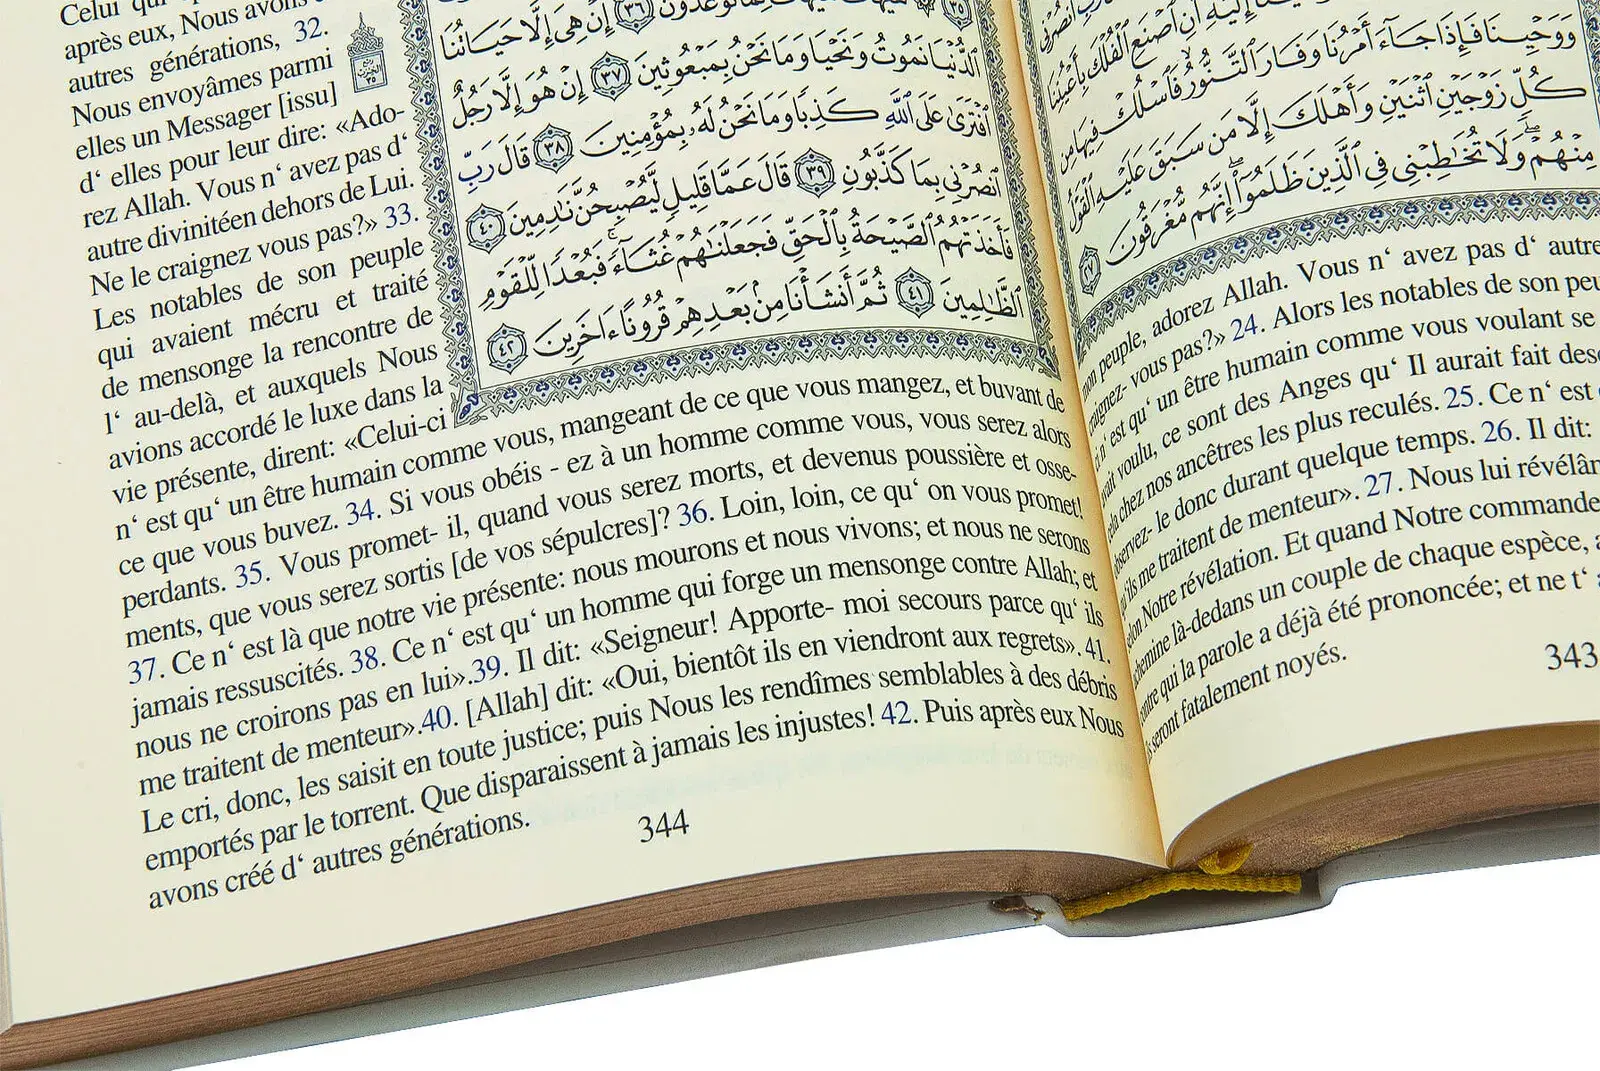 وَوَحْيِنَا فَإِذَا جَآءَ أَمْرُنَا وَفَارَ ٱلتَّنُّورُ فَٱسْلُكْ فِيهَا مِن
كُلٍّ زَوْجَيْنِ ٱثْنَيْنِ وَأَهْلَكَ إِلَّا مَن سَبَقَ عَلَيْهِ ٱلْقَوْلُ
مِنْهُمْ وَلَا تُخَٰطِبْنِى فِى ٱلَّذِينَ ظَلَمُوٓا۟ إِنَّهُم مُّغْرَقُونَ ٢٧
mon peuple, adorez Allah. Vous n‘ avez pas d‘ autre
vous pas?» 24. Alors les notables de son
n‘ est qu‘ un être humain comme vous voulant se
voulu, ce sont des Anges qu‘ Il aurait fait
cela chez nos ancêtres les plus reculés. 25. Ce n‘ est
observez- le donc durant quelque temps. 26. Il dit:
qu‘ils me traitent de menteur». 27. Nous lui
selon Notre révélation. Et quand Notre
achemine là-dedans un couple de chaque espèce,
contre qui la parole a déjà été prononcée; et ne t‘
ils seront fatalement noyés.
343
إِنْ هِىَ إِلَّا حَيَاتُنَا
ٱلدُّنْيَا نَمُوتُ وَنَحْيَا وَمَا نَحْنُ بِمَبْعُوثِينَ ٣٧ إِنْ هُوَ إِلَّا رَجُلٌ
ٱفْتَرَىٰ عَلَى ٱللَّهِ كَذِبًا وَمَا نَحْنُ لَهُۥ بِمُؤْمِنِينَ ٣٨ قَالَ رَبِّ
ٱنصُرْنِى بِمَا كَذَّبُونِ ٣٩ قَالَ عَمَّا قَلِيلٍ لَّيُصْبِحُنَّ نَٰدِمِينَ ٤٠
فَأَخَذَتْهُمُ ٱلصَّيْحَةُ بِٱلْحَقِّ فَجَعَلْنَٰهُمْ غُثَآءً ۚ فَبُعْدًا لِّلْقَوْمِ
ٱلظَّٰلِمِينَ ٤١ ثُمَّ أَنشَأْنَا مِنۢ بَعْدِهِمْ قُرُونًا ءَاخَرِينَ ٤٢
Celui
après eux, Nous avons
autres générations, 32.
Nous envoyâmes parmi
elles un Messager [issu]
d‘ elles pour leur dire: «Ado-
rez Allah. Vous n‘ avez pas d‘
autre divinitéen dehors de Lui.
Ne le craignez vous pas?» 33.
Les notables de son peuple
qui avaient mécru et traité
de mensonge la rencontre de
l‘ au-delà, et auxquels Nous
avions accordé le luxe dans la
vie présente, dirent: «Celui-ci
n‘ est qu‘ un être humain comme vous, mangeant de ce que vous mangez, et buvant de
ce que vous buvez. 34. Si vous obéis - ez à un homme comme vous, vous serez alors
perdants. 35. Vous promet- il, quand vous serez morts, et devenus poussière et osse-
ments, que vous serez sortis [de vos sépulcres]? 36. Loin, loin, ce qu‘ on vous promet!
37. Ce n‘ est là que notre vie présente: nous mourons et nous vivons; et nous ne serons
jamais ressuscités. 38. Ce n‘ est qu‘ un homme qui forge un mensonge contre Allah; et
nous ne croirons pas en lui».39. Il dit: «Seigneur! Apporte- moi secours parce qu‘ ils
me traitent de menteur».40. [Allah] dit: «Oui, bientôt ils en viendront aux regrets». 41.
Le cri, donc, les saisit en toute justice; puis Nous les rendîmes semblables à des débris
emportés par le torrent. Que disparaissent à jamais les injustes! 42. Puis après eux Nous
avons créé d‘ autres générations.
344